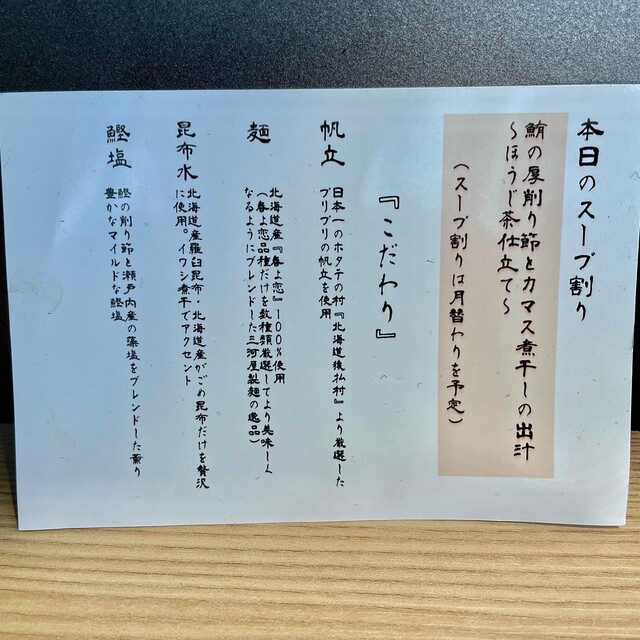 本日のスープ割り
鮪の厚削り節とカマス煮干しの出汁
〜ほうじ茶仕立て〜
（スープ割りは月替わりを予定）
『こだわり』
帆立
日本一のホタテの村『北海道猿払村』より厳選した
プリプリの帆立を使用
麺
北海道産『春よ恋』100%使用
（春よ恋品種だけを数種類厳選してより美味しく
なるようにブレンドした三河屋製麺の逸品）
昆布水
北海道産羅臼昆布・北海道産がごめ昆布だけを贅沢
に使用。イワシ煮干でアクセント
鰹塩
鰹の削り節と瀬戸内産の藻塩をブレンドした薫り
豊かなマイルドな鰹塩